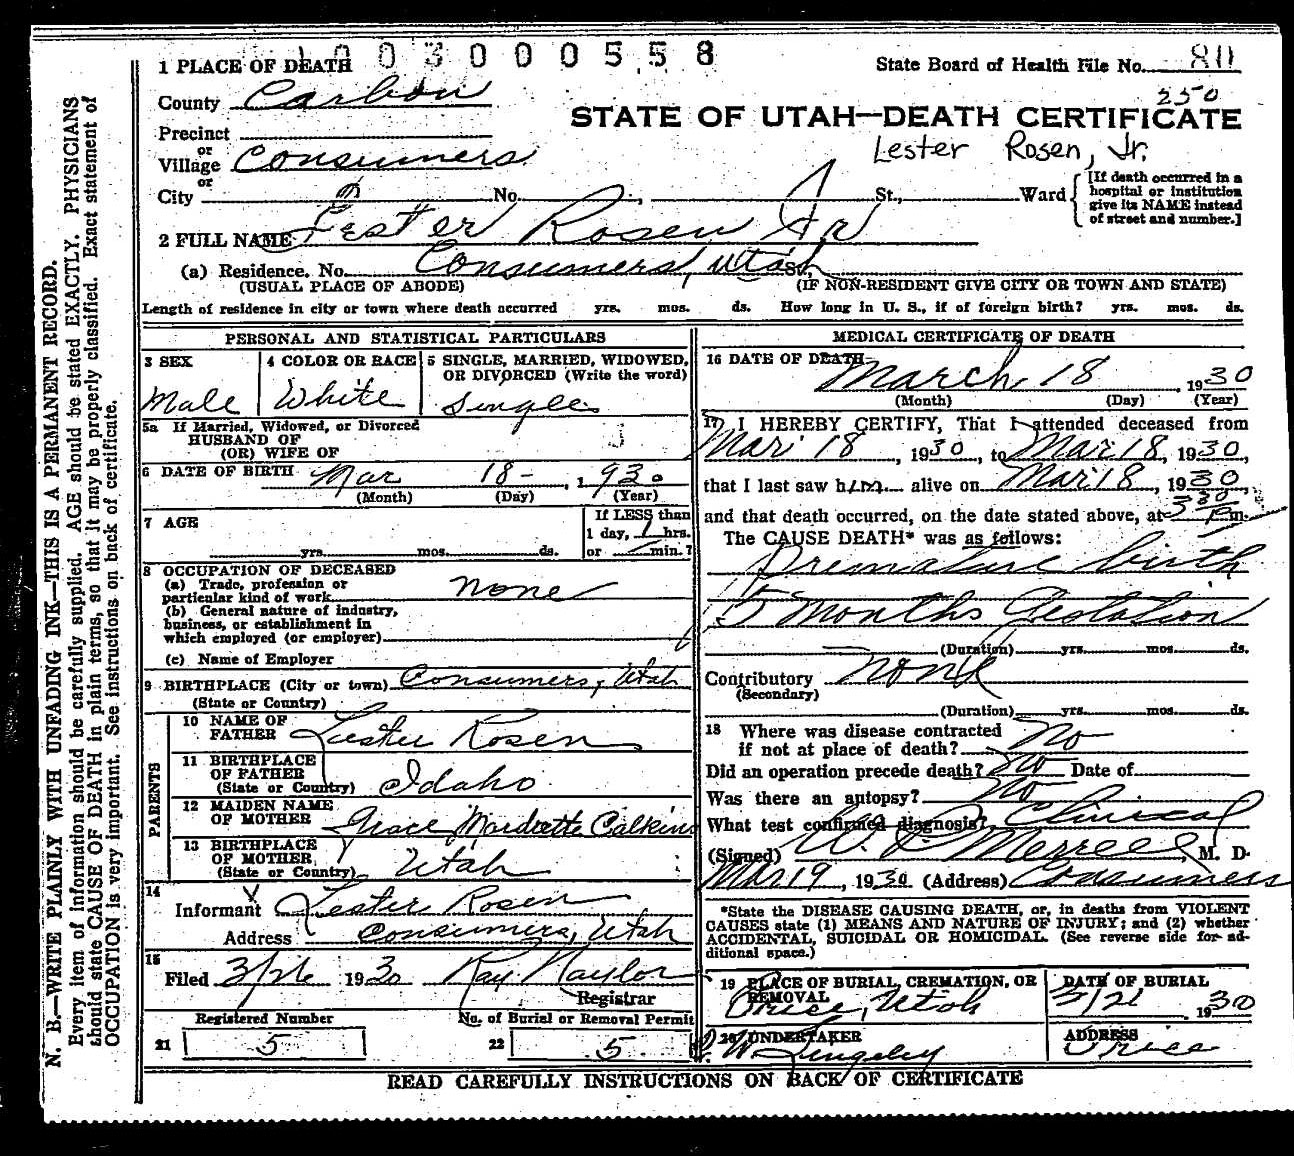 003000558
1 PLACE OF DEATH
State Board of Health File No. 80
County Carbon
250
STATE OF UTAH—DEATH CERTIFICATE
Precinct
or
Village Consumers
Lester Rosen, Jr.
or
City No. St., Ward
[If death occurred in a
hospital or institution
give its NAME instead
of street and number.]
2 FULL NAME Lester Rosen Jr
(a) Residence. No. Consumers, Utah St.,
(USUAL PLACE OF ABODE) (IF NON-RESIDENT GIVE CITY OR TOWN AND STATE)
Length of residence in city or town where death occurred yrs. mos. ds. How long in U. S., if of foreign birth? yrs. mos. ds.
PERSONAL AND STATISTICAL PARTICULARS
3 SEX
Male
4 COLOR OR RACE
White
5 SINGLE, MARRIED, WIDOWED,
OR DIVORCED (Write the word)
Single
5a If Married, Widowed, or Divorced
HUSBAND OF
(OR) WIFE OF
6 DATE OF BIRTH Mar 18- , 1930
(Month) (Day) (Year)
7 AGE
yrs. mos. ds.
If LESS than
1 day, 1 hrs.
or min.?
8 OCCUPATION OF DECEASED
(a) Trade, profession or
particular kind of work none
(b) General nature of industry,
business, or establishment in
which employed (or employer)
(c) Name of Employer
9 BIRTHPLACE (City or town) Consumers, Utah
(State or Country)
PARENTS
10 NAME OF
FATHER Lester Rosen
11 BIRTHPLACE
OF FATHER
(State or Country) Idaho
12 MAIDEN NAME
OF MOTHER Grace Calkins
13 BIRTHPLACE
OF MOTHER
(State or Country) Utah
14
Informant Lester Rosen
Address Consumers, Utah
15
Filed 3/26 1930 Ray Naylor
Registrar
Registered Number
21 5
No. of Burial or Removal Permit
22 5
MEDICAL CERTIFICATE OF DEATH
16 DATE OF DEATH
March 18 , 1930
(Month) (Day) (Year)
17 I HEREBY CERTIFY, That I attended deceased from
Mar 18 , 1930, to Mar 18, 1930,
that I last saw him alive on Mar 18 , 1930,
and that death occurred, on the date stated above, at 330 P m.
The CAUSE DEATH* was as follows:
Premature birth
5 months Gestation
(Duration) yrs. mos. ds.
Contributory none
(Secondary)
(Duration) yrs. mos. ds.
18 Where was disease contracted
if not at place of death? No
Did an operation precede death? No Date of
Was there an autopsy? No
What test confirmed diagnosis? Clinical
(Signed) Merrell, M. D.
Mar 19, 1930 (Address) Consumers
*State the DISEASE CAUSING DEATH, or, in deaths from VIOLENT
CAUSES state (1) MEANS AND NATURE OF INJURY; and (2) whether
ACCIDENTAL, SUICIDAL OR HOMICIDAL. (See reverse side for ad-
ditional space.)
19 PLACE OF BURIAL, CREMATION, OR
REMOVAL
Price, Utah
DATE OF BURIAL
3/21 1930
20 UNDERTAKER
ADDRESS
Price
READ CAREFULLY INSTRUCTIONS ON BACK OF CERTIFICATE
N. B.—WRITE PLAINLY WITH UNFADING INK—THIS IS A PERMANENT RECORD.
Every item of information should be carefully supplied. AGE should be stated EXACTLY. PHYSICIANS
should state CAUSE OF DEATH in plain terms, so that it may be properly classified. Exact statement of
OCCUPATION is very important. See instructions on back of certificate.